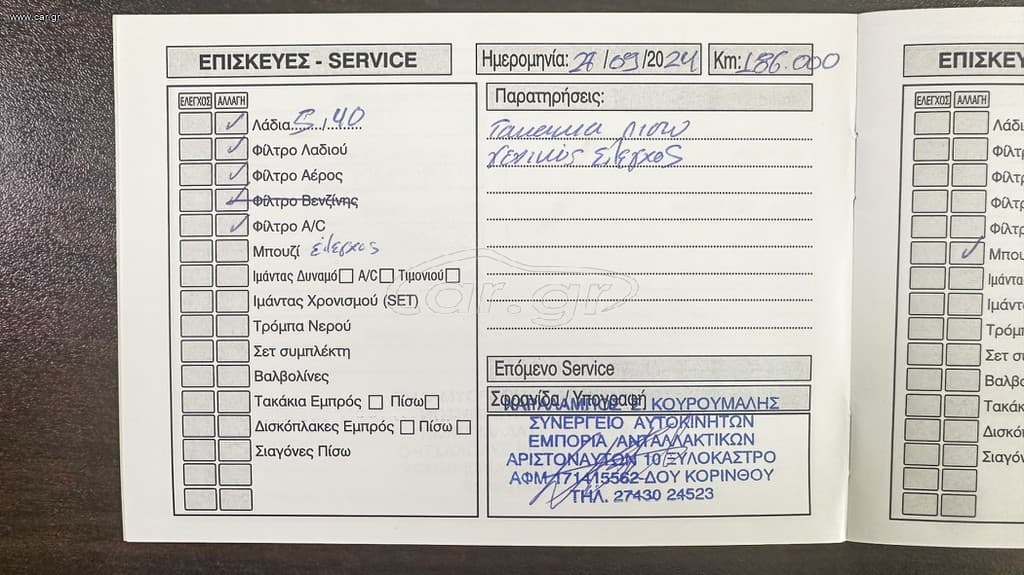 www.car.gr
ΕΠΙΣΚΕΥΕΣ - SERVICE
Ημερομηνία: /09/2024 Km: 186.000
ΕΛΕΓΧΟΣ ΑΛΛΑΓΗ
Λάδια 5/40
Φίλτρο Λαδιού
Φίλτρο Αέρος
Φίλτρο Βενζίνης
Φίλτρο A/C
Μπουζί έλεγχος
Ιμάντας Δυναμό A/C Τιμονιού
Ιμάντας Χρονισμού (SET)
Τρόμπα Νερού
Σετ συμπλέκτη
Βαλβολίνες
Τακάκια Εμπρός Πίσω
Δισκόπλακες Εμπρός Πίσω
Σιαγόνες Πίσω
Παρατηρήσεις:
Τακακια πισω
γενικός έλεγχος
car.gr
Επόμενο Service
Σφραγίδα / Υπογραφή
ΚΟΥΡΟΥΜΑΛΗΣ
ΣΥΝΕΡΓΕΙΟ ΑΥΤΟΚΙΝΗΤΩΝ
ΕΜΠΟΡΙΑ ΑΝΤΑΛΛΑΚΤΙΚΩΝ
ΑΡΙΣΤΟΝΑΥΤΩΝ 10 ΞΥΛΟΚΑΣΤΡΟ
ΑΦΜ 171415562-ΔΟΥ ΚΟΡΙΝΘΟΥ
ΤΗΛ. 27430 24523
ΕΠΙΣΚΕΥ
ΕΛΕΓΧΟΣ ΑΛΛΑΓΗ
Λάδι
Φίλτρ
Φίλτρ
Φίλτρ
Φίλτρ
Μπου
Ιμάντ
Ιμάντ
Τρόμ
Σετ σ
Βαλβ
Τακάκ
Δισκό
Σιαγόν